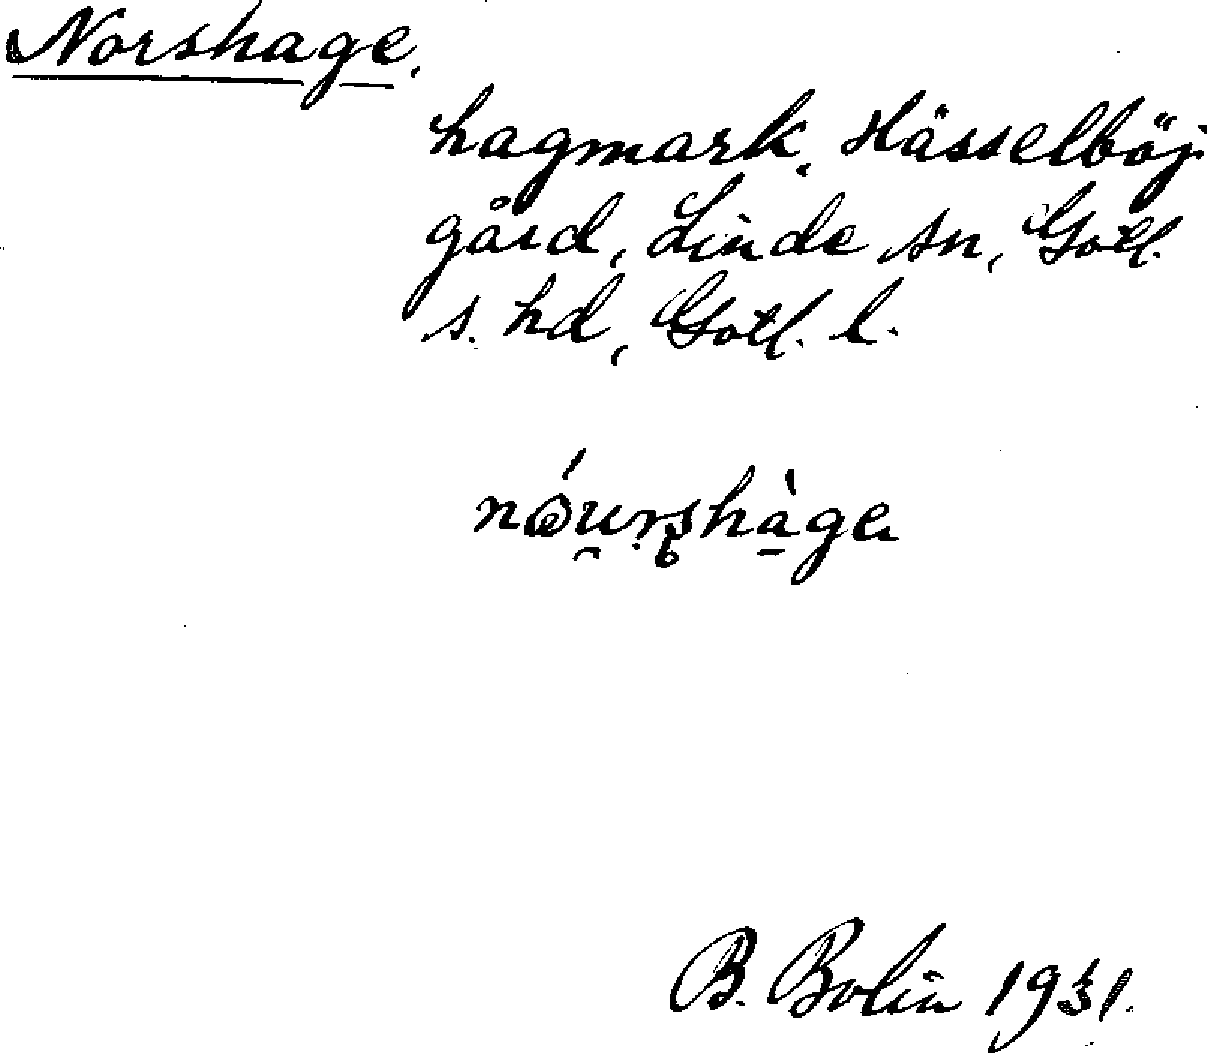 Norshage,
hagmark, Hässelböj
gård, Linde sn, Gotl.
s. hd, Gotl. l.
B. Bolin 1931.